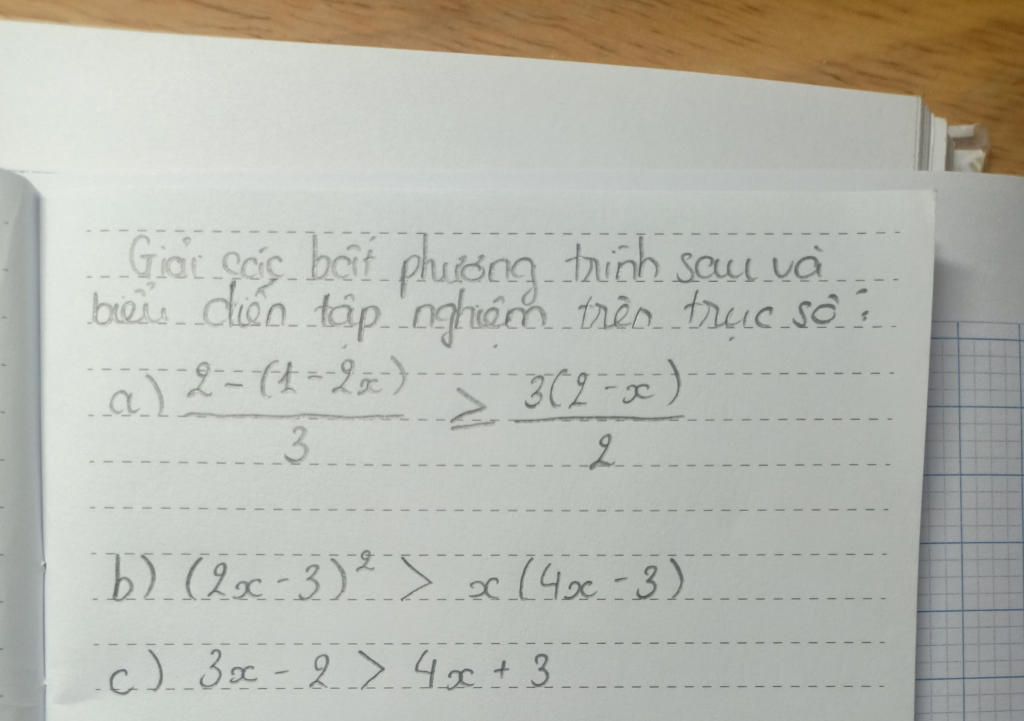 Giải các bất phương trình sau và
biểu diễn tập nghiệm trên trục số:
a) \frac{2-(1-2x)}{3} ≥ \frac{3(2-x)}{2}
b) (2x-3)² > x(4x-3)
c) 3x - 2 > 4x + 3